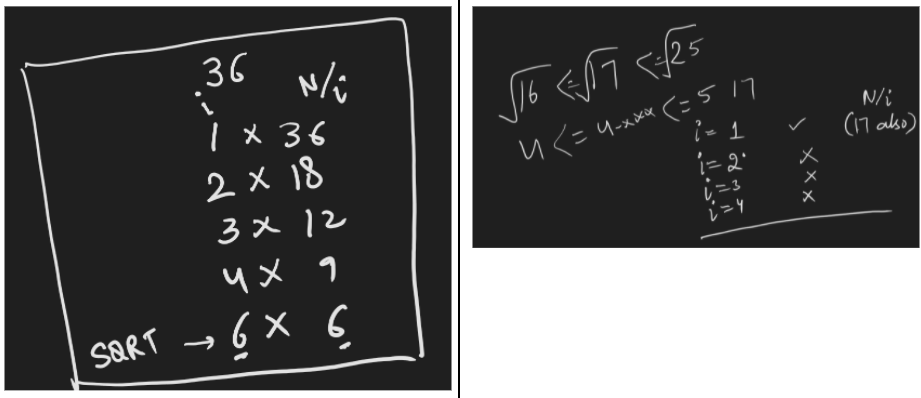 36
i N/i
1 × 36
2 × 18
3 × 12
4 × 9
SQRT → 6 × 6
√16 <= √17 <= √25
4 <= 4.xxx <= 5 17
N/i
i = 1 ✓ (17 also)
i = 2 ×
i = 3 ×
i = 4 ×